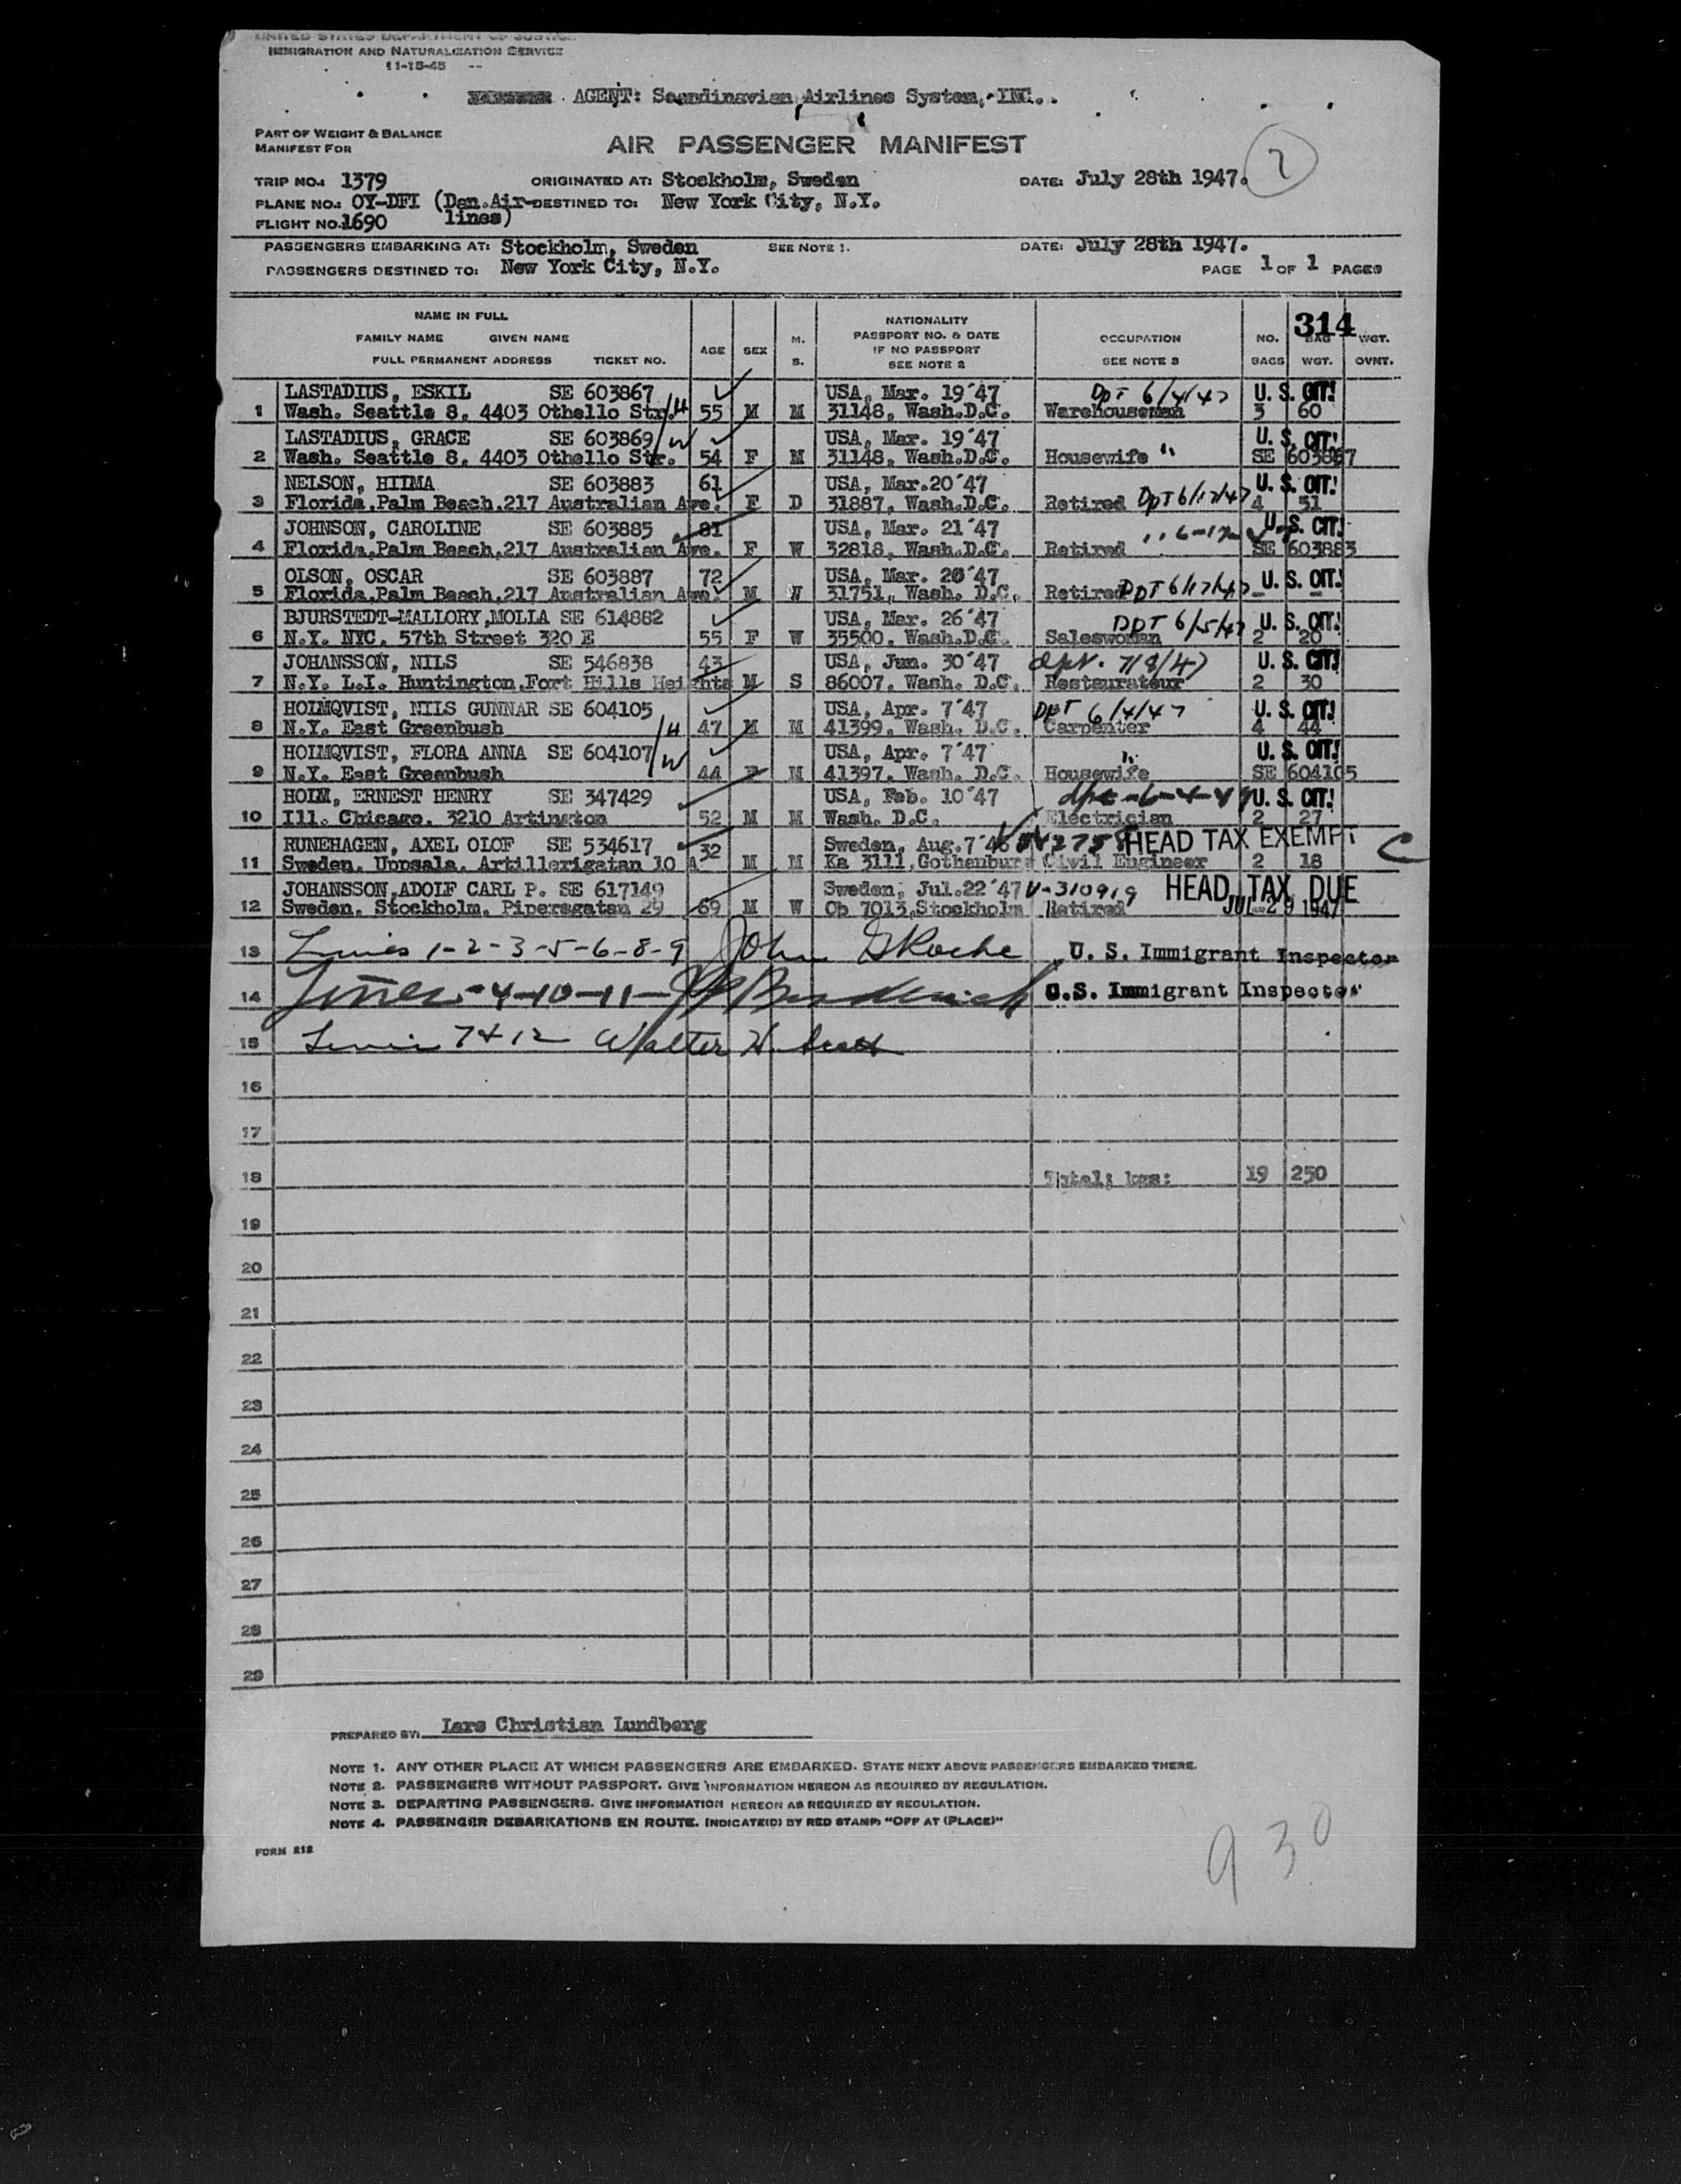 UNITED STATES DEPARTMENT OF JUSTICE
IMMIGRATION AND NATURALIZATION SERVICE
11-15-45 --
AGENT: Scandinavian Airlines System, INC..
PART OF WEIGHT & BALANCE
MANIFEST FOR
AIR PASSENGER MANIFEST
2
TRIP NO.: 1379 ORIGINATED AT: Stockholm, Sweden DATE: July 28th 1947.
PLANE NO.: OY-DFI (Dan.Air-lines) DESTINED TO: New York City, N.Y.
FLIGHT NO. 1690
PASSENGERS EMBARKING AT: Stockholm, Sweden SEE NOTE 1. DATE: July 28th 1947.
PASSENGERS DESTINED TO: New York City, N.Y. PAGE 1 OF 1 PAGES
314
NAME IN FULL
FAMILY NAME GIVEN NAME
FULL PERMANENT ADDRESS TICKET NO. AGE SEX M. S. NATIONALITY PASSPORT NO. & DATE IF NO PASSPORT SEE NOTE 2 OCCUPATION SEE NOTE 3 NO. BAGS BAG WGT. WGT. OVNT.
LASTADIUS, ESKIL SE 603867 USA, Mar. 19'47 DPT 6/4/47 U. S. CIT!
1 Wash. Seattle 8, 4403 Othello Str. /H 55 M M 31148, Wash.D.C. Warehouseman 3 60
LASTADIUS, GRACE SE 603869 /W USA, Mar. 19'47 U. S. CIT!
2 Wash. Seattle 8, 4403 Othello Str. 54 F M 31148, Wash.D.C. Housewife " SE 603867
NELSON, HILMA SE 603883 61 USA, Mar.20'47 U. S. CIT!
3 Florida,Palm Beach,217 Australian Ave. F D 31887, Wash.D.C. Retired DPT 6/17/47 4 51
JOHNSON, CAROLINE SE 603885 81 USA, Mar. 21'47 U. S. CIT!
4 Florida,Palm Beach,217 Australian Ave. F W 32818, Wash.D.C. Retired SE 603883
OLSON, OSCAR SE 603887 72 USA, Mar. 20'47 U. S. CIT!
5 Florida,Palm Beach,217 Australian Ave. M W 31751, Wash. D.C. Retired DPT 6/17/47 - -
BJURSTEDT-MALLORY,MOLLA SE 614882 USA, Mar. 26'47 DPT 6/5/47 U. S. CIT!
6 N.Y. NYC, 57th Street 320 E 55 F W 35500, Wash.D.C. Saleswoman 2 20
JOHANSSON, NILS SE 546838 43 USA, Jun. 30'47 dpt. 7/8/47 U. S. CIT!
7 N.Y. L.I. Huntington,Fort Hills Heights M S 86007, Wash. D.C. Restaurateur 2 30
HOLMQVIST, NILS GUNNAR SE 604105 USA, Apr. 7'47 DPT 6/4/47 U. S. CIT!
8 N.Y. East Greenbush /H 47 M M 41399, Wash. D.C. Carpenter 4 44
HOLMQVIST, FLORA ANNA SE 604107 /W USA, Apr. 7'47 " U. S. CIT!
9 N.Y. East Greenbush 44 F M 41397, Wash. D.C. Housewife SE 604105
HOLM, ERNEST HENRY SE 347429 USA, Feb. 10'47 U. S. CIT!
10 Ill. Chicago, 3210 Artington 52 M M Wash. D.C. Electrician 2 27
RUNEHAGEN, AXEL OLOF SE 534617 32 Sweden, Aug.7'46 HEAD TAX EXEMPT C
11 Sweden, Uppsala, Artillerigatan 10 A M M Ka 3111,Gothenburg Civil Engineer 2 18
JOHANSSON,ADOLF CARL P. SE 617149 Sweden, Jul.22'47 V-310919 HEAD TAX DUE
12 Sweden, Stockholm, Pipersgatan 29 69 M W Cb 7013,Stockholm Retired JUL 29 1947
13 Lines 1-2-3-5-6-8-9 John G Roche U. S. Immigrant Inspector
14 Lines-4-10-11- U.S. Immigrant Inspector
15 Lines 7+12 Walter H. Scott
16
17
18 Total: kgs: 19 250
19
20
21
22
23
24
25
26
27
28
29
PREPARED BY: Lars Christian Lundberg
NOTE 1. ANY OTHER PLACE AT WHICH PASSENGERS ARE EMBARKED. STATE NEXT ABOVE PASSENGERS EMBARKED THERE.
NOTE 2. PASSENGERS WITHOUT PASSPORT. GIVE INFORMATION HEREON AS REQUIRED BY REGULATION.
NOTE 3. DEPARTING PASSENGERS. GIVE INFORMATION HEREON AS REQUIRED BY REGULATION.
NOTE 4. PASSENGER DEBARKATIONS EN ROUTE. INDICATE(D) BY RED STAMP: "OFF AT (PLACE)"
FORM 212
930